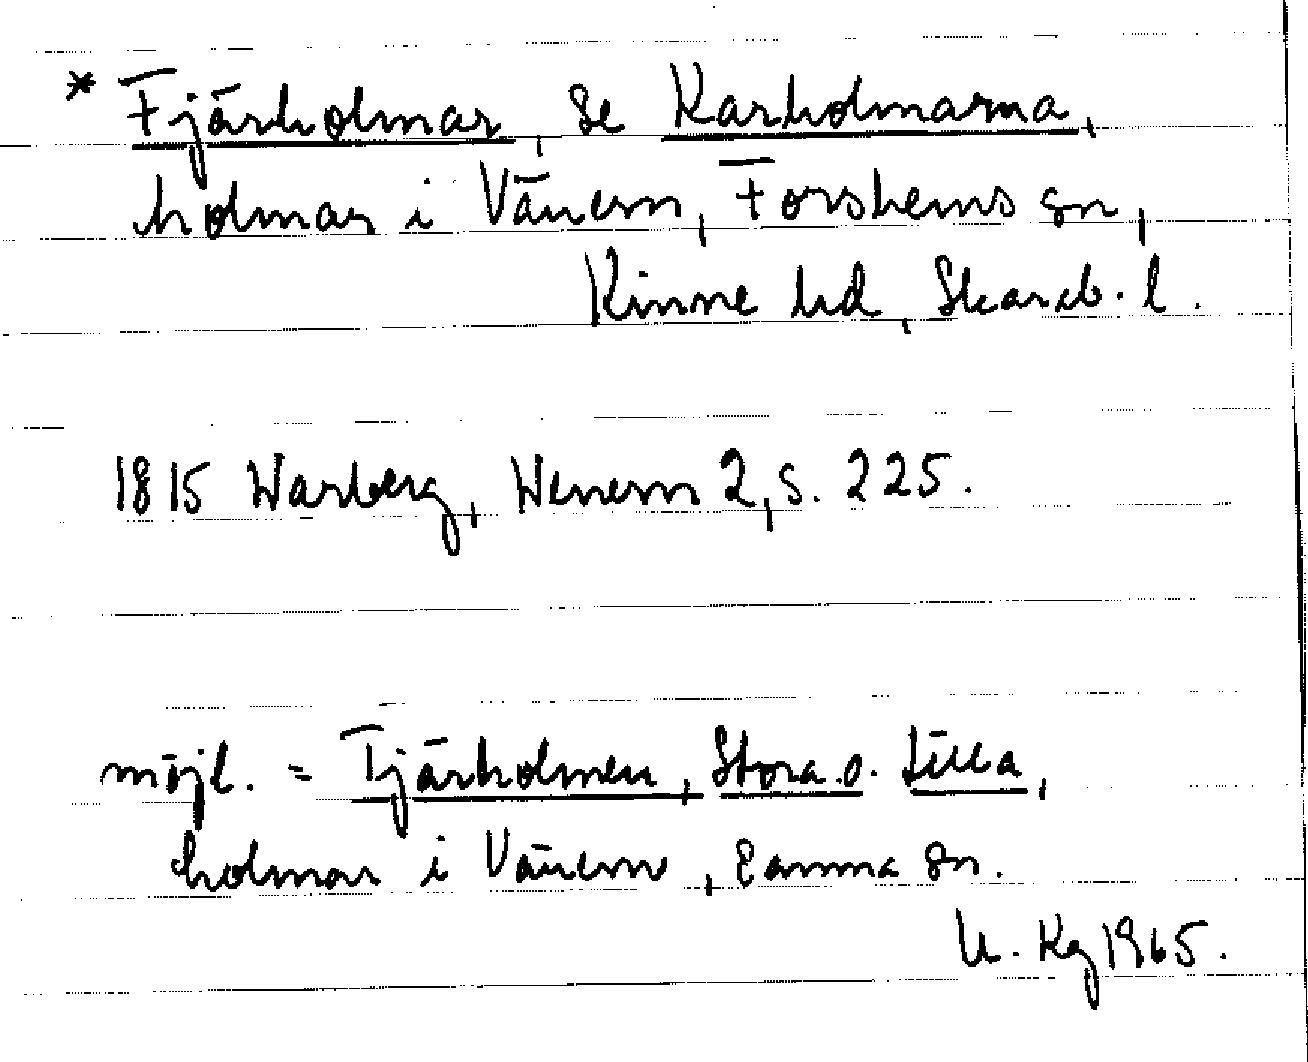 * Fjärholmar, se Karholmarna,
holmar i Vänern, Forshems sn,
Kinne hd, Skarab. l.
1815 Warberg, Wenern 2, s. 225.
möjl. = Tjärholmen, Stora o. Lilla,
holmar i Vänern, samma sn.
U. Kg 1965.